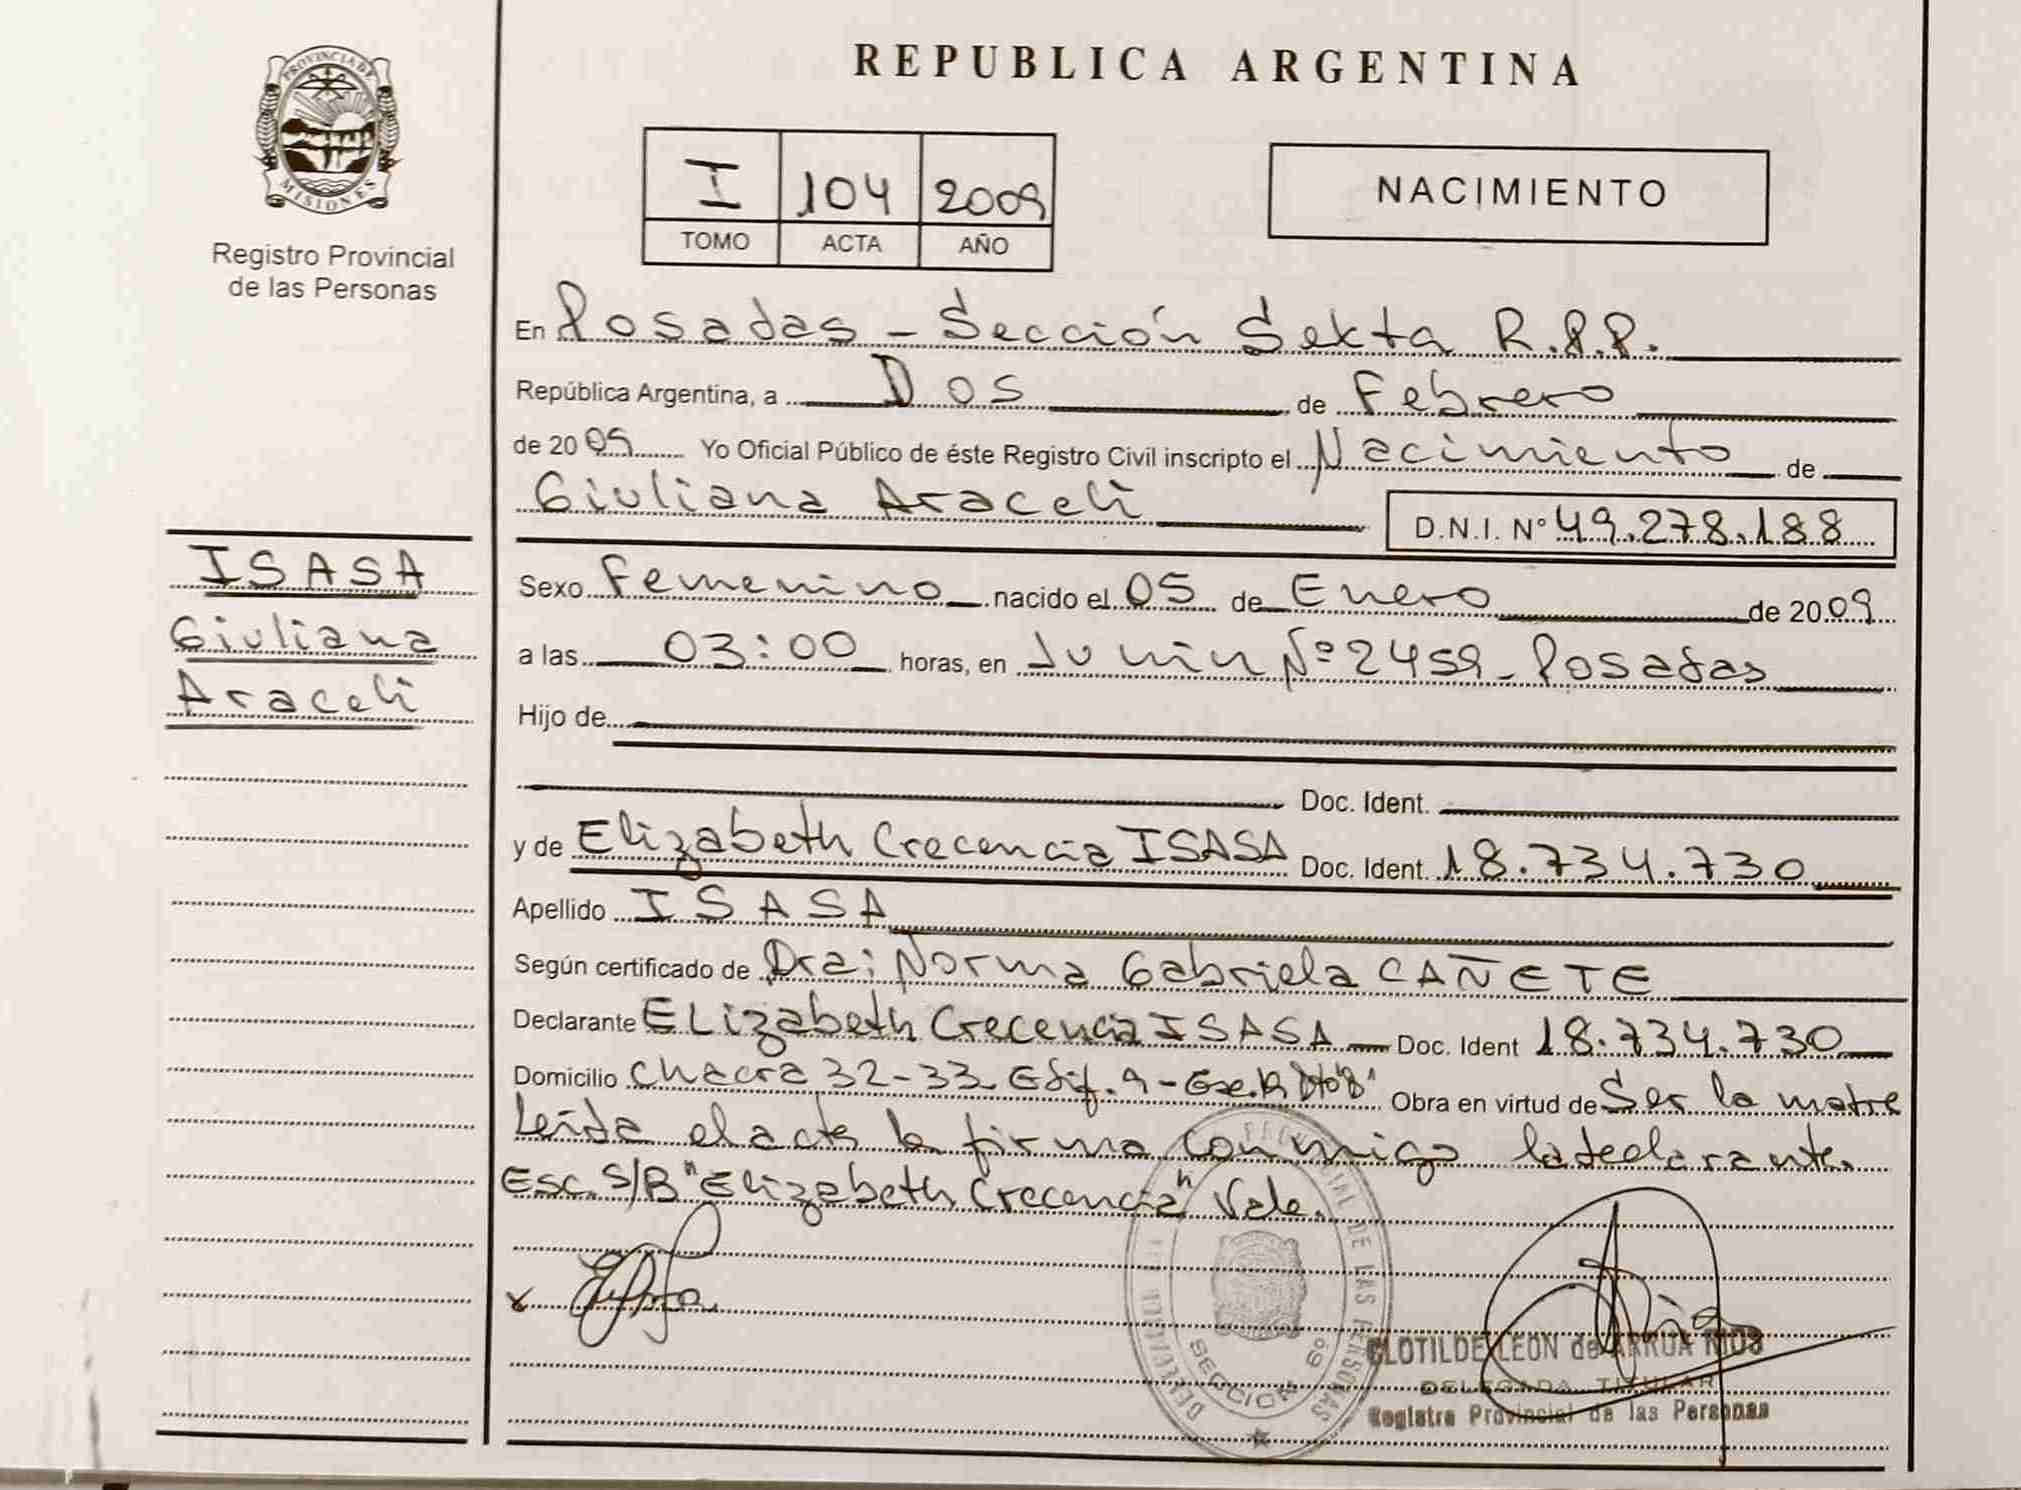 PROVINCIA DE
MISIONES
Registro Provincial
de las Personas
REPUBLICA ARGENTINA
I 104 2009
TOMO ACTA AÑO
NACIMIENTO
En Posadas - Sección Sexta R.P.P.
República Argentina, a Dos de Febrero
de 2009 Yo Oficial Público de éste Registro Civil inscripto el Nacimiento de
Giuliana Araceli D.N.I. N° 49.278.188
ISASA
Giuliana
Araceli
Sexo Femenino nacido el 05 de Enero de 2009
a las 03:00 horas, en Junin Nº 2459 - Posadas
Hijo de
Doc. Ident.
y de Elizabeth Crecencia ISASA Doc. Ident. 18.734.730
Apellido ISASA
Según certificado de Dra: Norma Gabriela CAÑETE
Declarante Elizabeth Crecencia ISASA Doc. Ident 18.734.730
Domicilio Chacra 32-33 Edif. 9 - Obra en virtud de Ser la madre
Leída el acta la firma conmigo la declarante.
Esc. S/B "Elizabeth Crecencia" Vale.
x
SECCION 6º
CLOTILDE LEON de ARRUA RIOS
DELEGADA TITULAR
Registro Provincial de las Personas